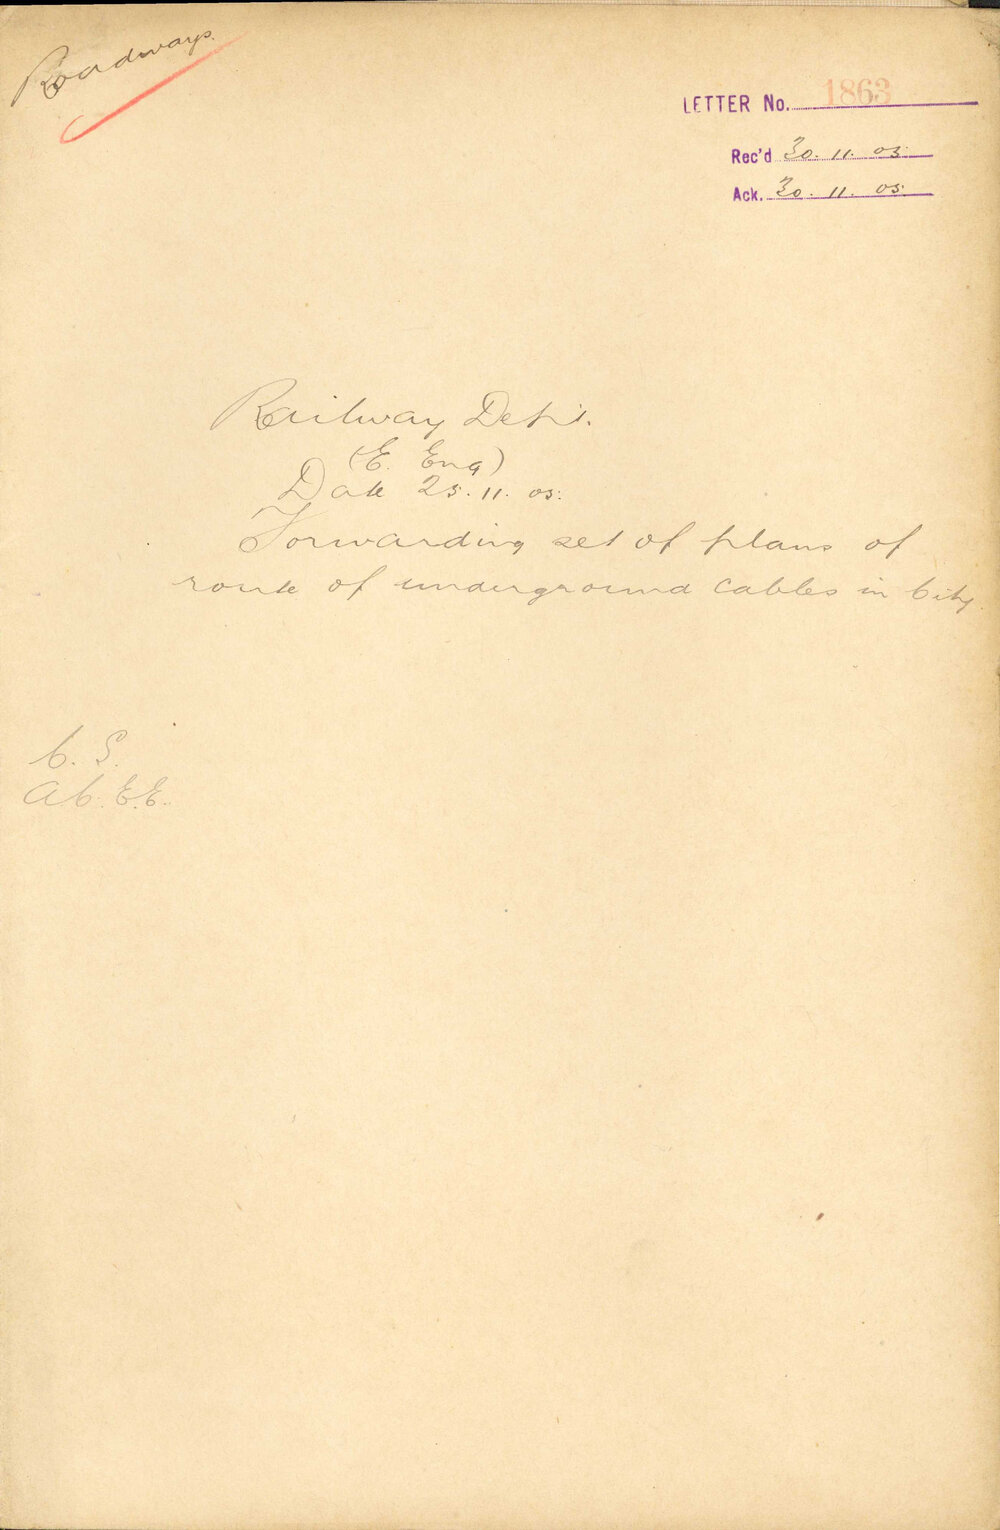 Roadways.
LETTER No. 1863
Rec'd 30. 11. 05.
Ack. 30. 11. 05.
Railway Dept.
(E. Eng)
Date 25. 11. 05.
Forwarding set of plans of
route of underground cables in City.
C. S.
A C. E. E.